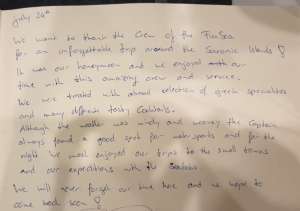 July 24th
We want to thank the Crew of the FunSea
for an unforgettable trip around the Saronic Islands
It was our honeymoon and we enjoyed our
time with this amazing crew and service.
We were treated with a broad selection of greek specialities
and many different tasty Cocktails.
Although the weather was windy and wavey the Captain
always found a good spot for watersports and for the
night. We most enjoyed our trips to the small towns
and our expeditions with the Seabobs
We will never forget our time here and we hope to
come back soon!